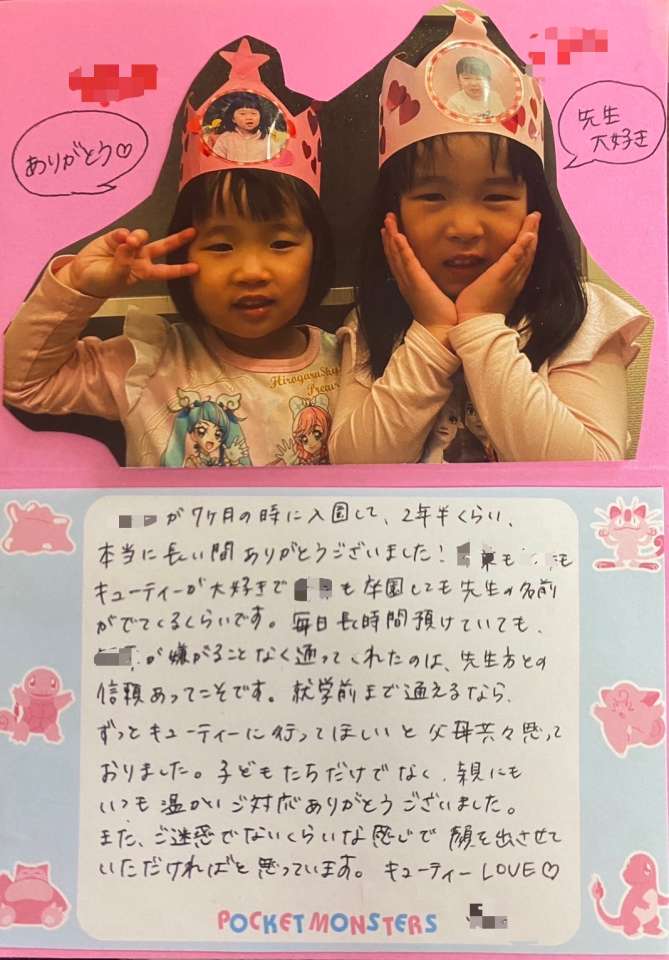 ありがとう♡
先生
大好き
HirogaruSky
Precure
が7ヶ月の時に入園して、2年半くらい、
本当に長い間ありがとうございました!
キューティーが大好きで も卒園しても先生の名前
がでてくるくらいです。毎日長時間預けていても、
が嫌がることなく通ってくれたのは、先生方との
信頼あってこそです。就学前まで通えるなら、
ずっとキューティーに行ってほしいと父母共々思って
おりました。子どもたちだけでなく、親にも
いつも温かいご対応ありがとうございました。
また、ご迷惑でないくらいな感じで顔を出させて
いただければと思っています。キューティーLOVE♡
POCKET MONSTERS